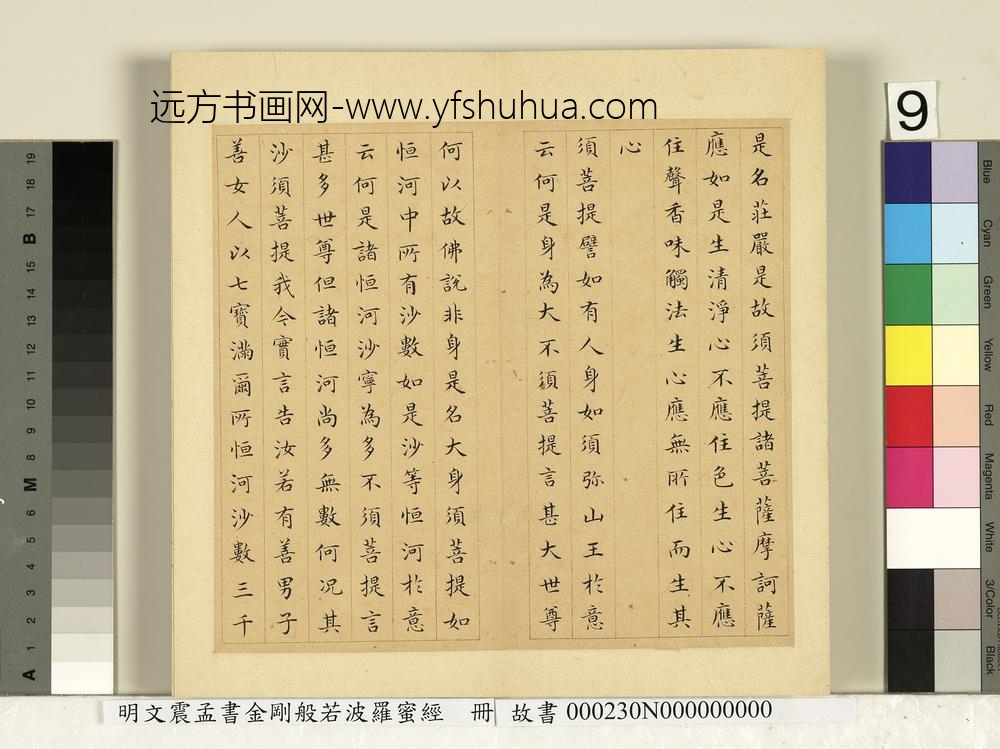 远方书画网-www.yfshuhua.com
是名莊嚴是故須菩提諸菩薩摩訶薩
應如是生清淨心不應住色生心不應
住聲香味觸法生心應無所住而生其
心
須菩提譬如有人身如須弥山王於意
云何是身為大不須菩提言甚大世尊
何以故佛說非身是名大身須菩提如
恒河中所有沙數如是沙等恒河於意
云何是諸恒河沙寧為多不須菩提言
甚多世尊但諸恒河尚多無數何况其
沙須菩提我今實言告汝若有善男子
善女人以七寶滿爾所恒河沙數三千
明文震孟書金剛般若波羅蜜經 冊 故書 000230N000000000
9
Blue
Cyan
Green
Yellow
Red
Magenta
White
3/Color
Black
19
18
17
B
15
14
13
12
11
10
9
8
M
6
5
4
3
2
1
A